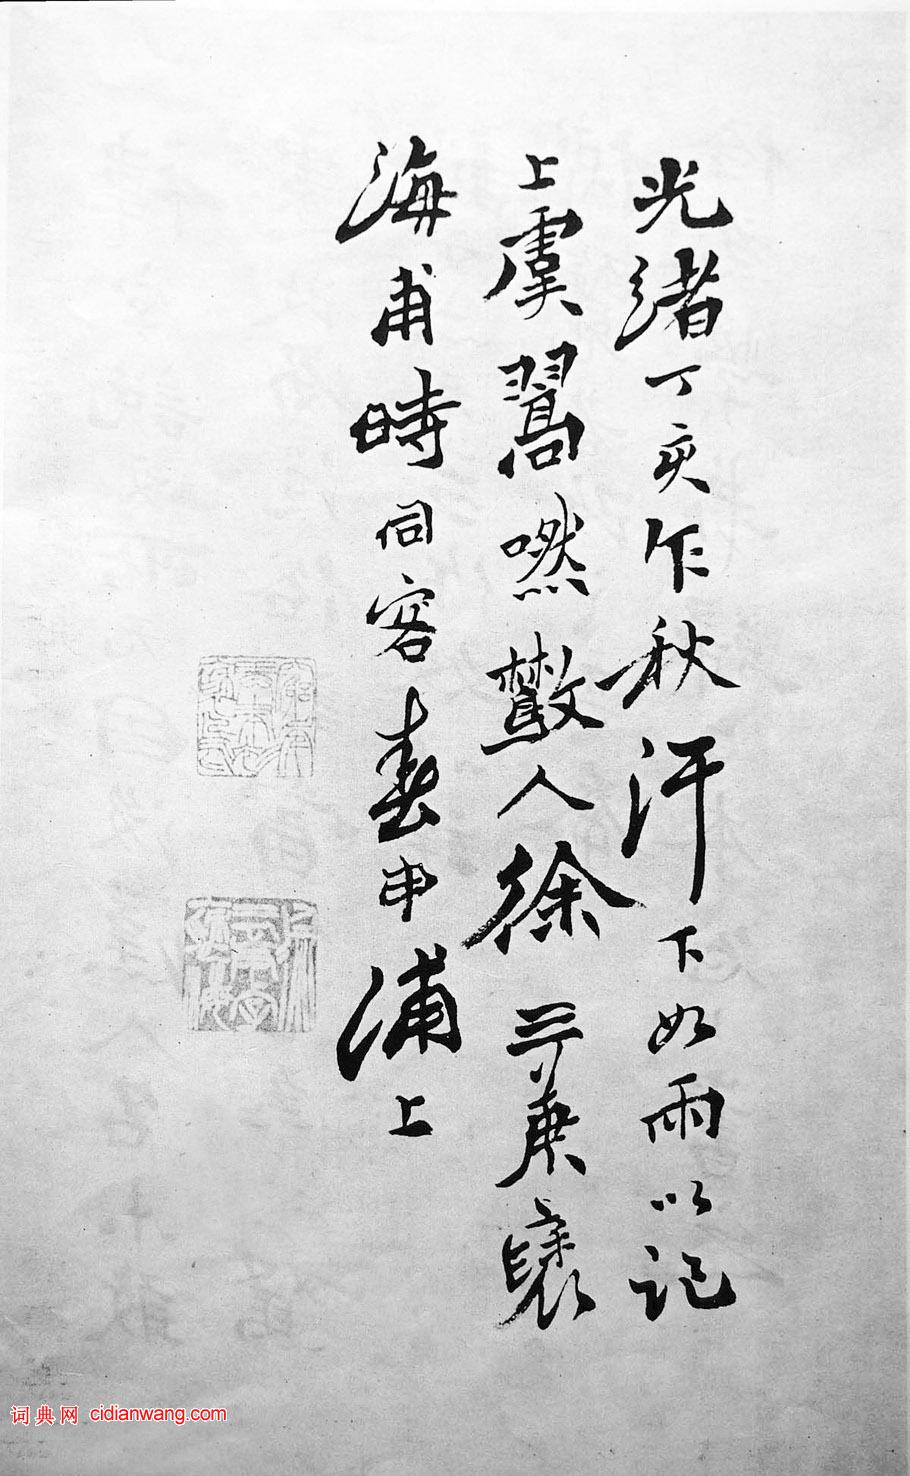 光緒丁亥乍秋汗下如雨以記
上虞翯嘫散人徐三庚褎
海甫時同客春申浦上
词典网 cidianwang.com